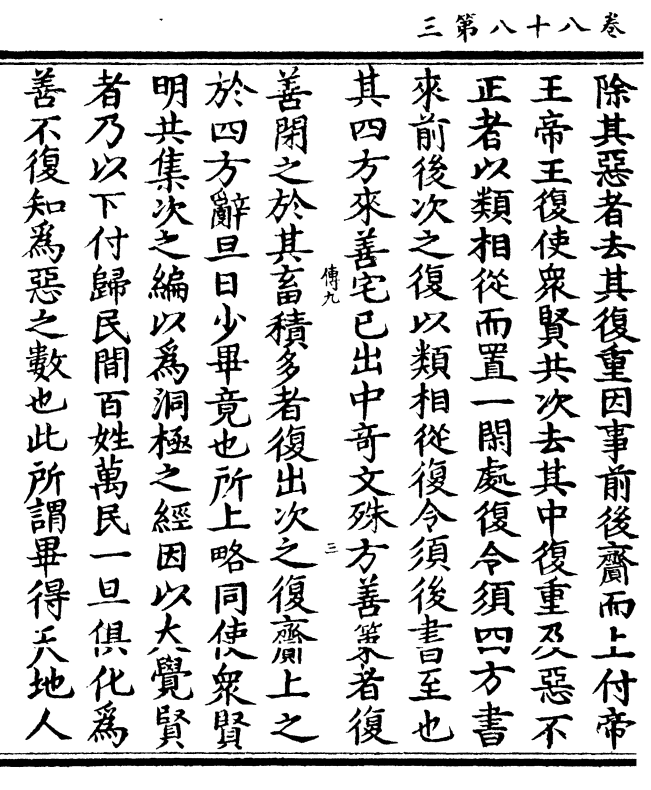 卷八十八第三
除其惡者去其復重因事前後齎而上付帝
王帝王復使衆賢共次去其中復重及惡不
正者以類相從而置一閑處復令須四方書
來前後次之復以類相從復令須後書至也
其四方來善宅已出中奇文殊方善策者復
傳九
三
善閑之於其畜積多者復出次之復齎上之
於四方辭旦日少畢竟也所上略同使衆賢
明共集次之編以爲洞極之經因以大覺賢
者乃以下付歸民間百姓萬民一旦俱化爲
善不復知爲惡之數也此所謂畢得天地人